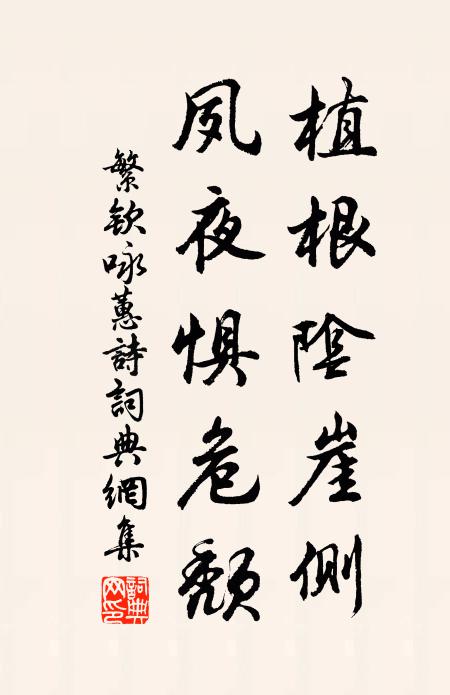 植根陰崖側
夙夜惧危頽
繁欽咏蕙詩詞典網集
詞典網印